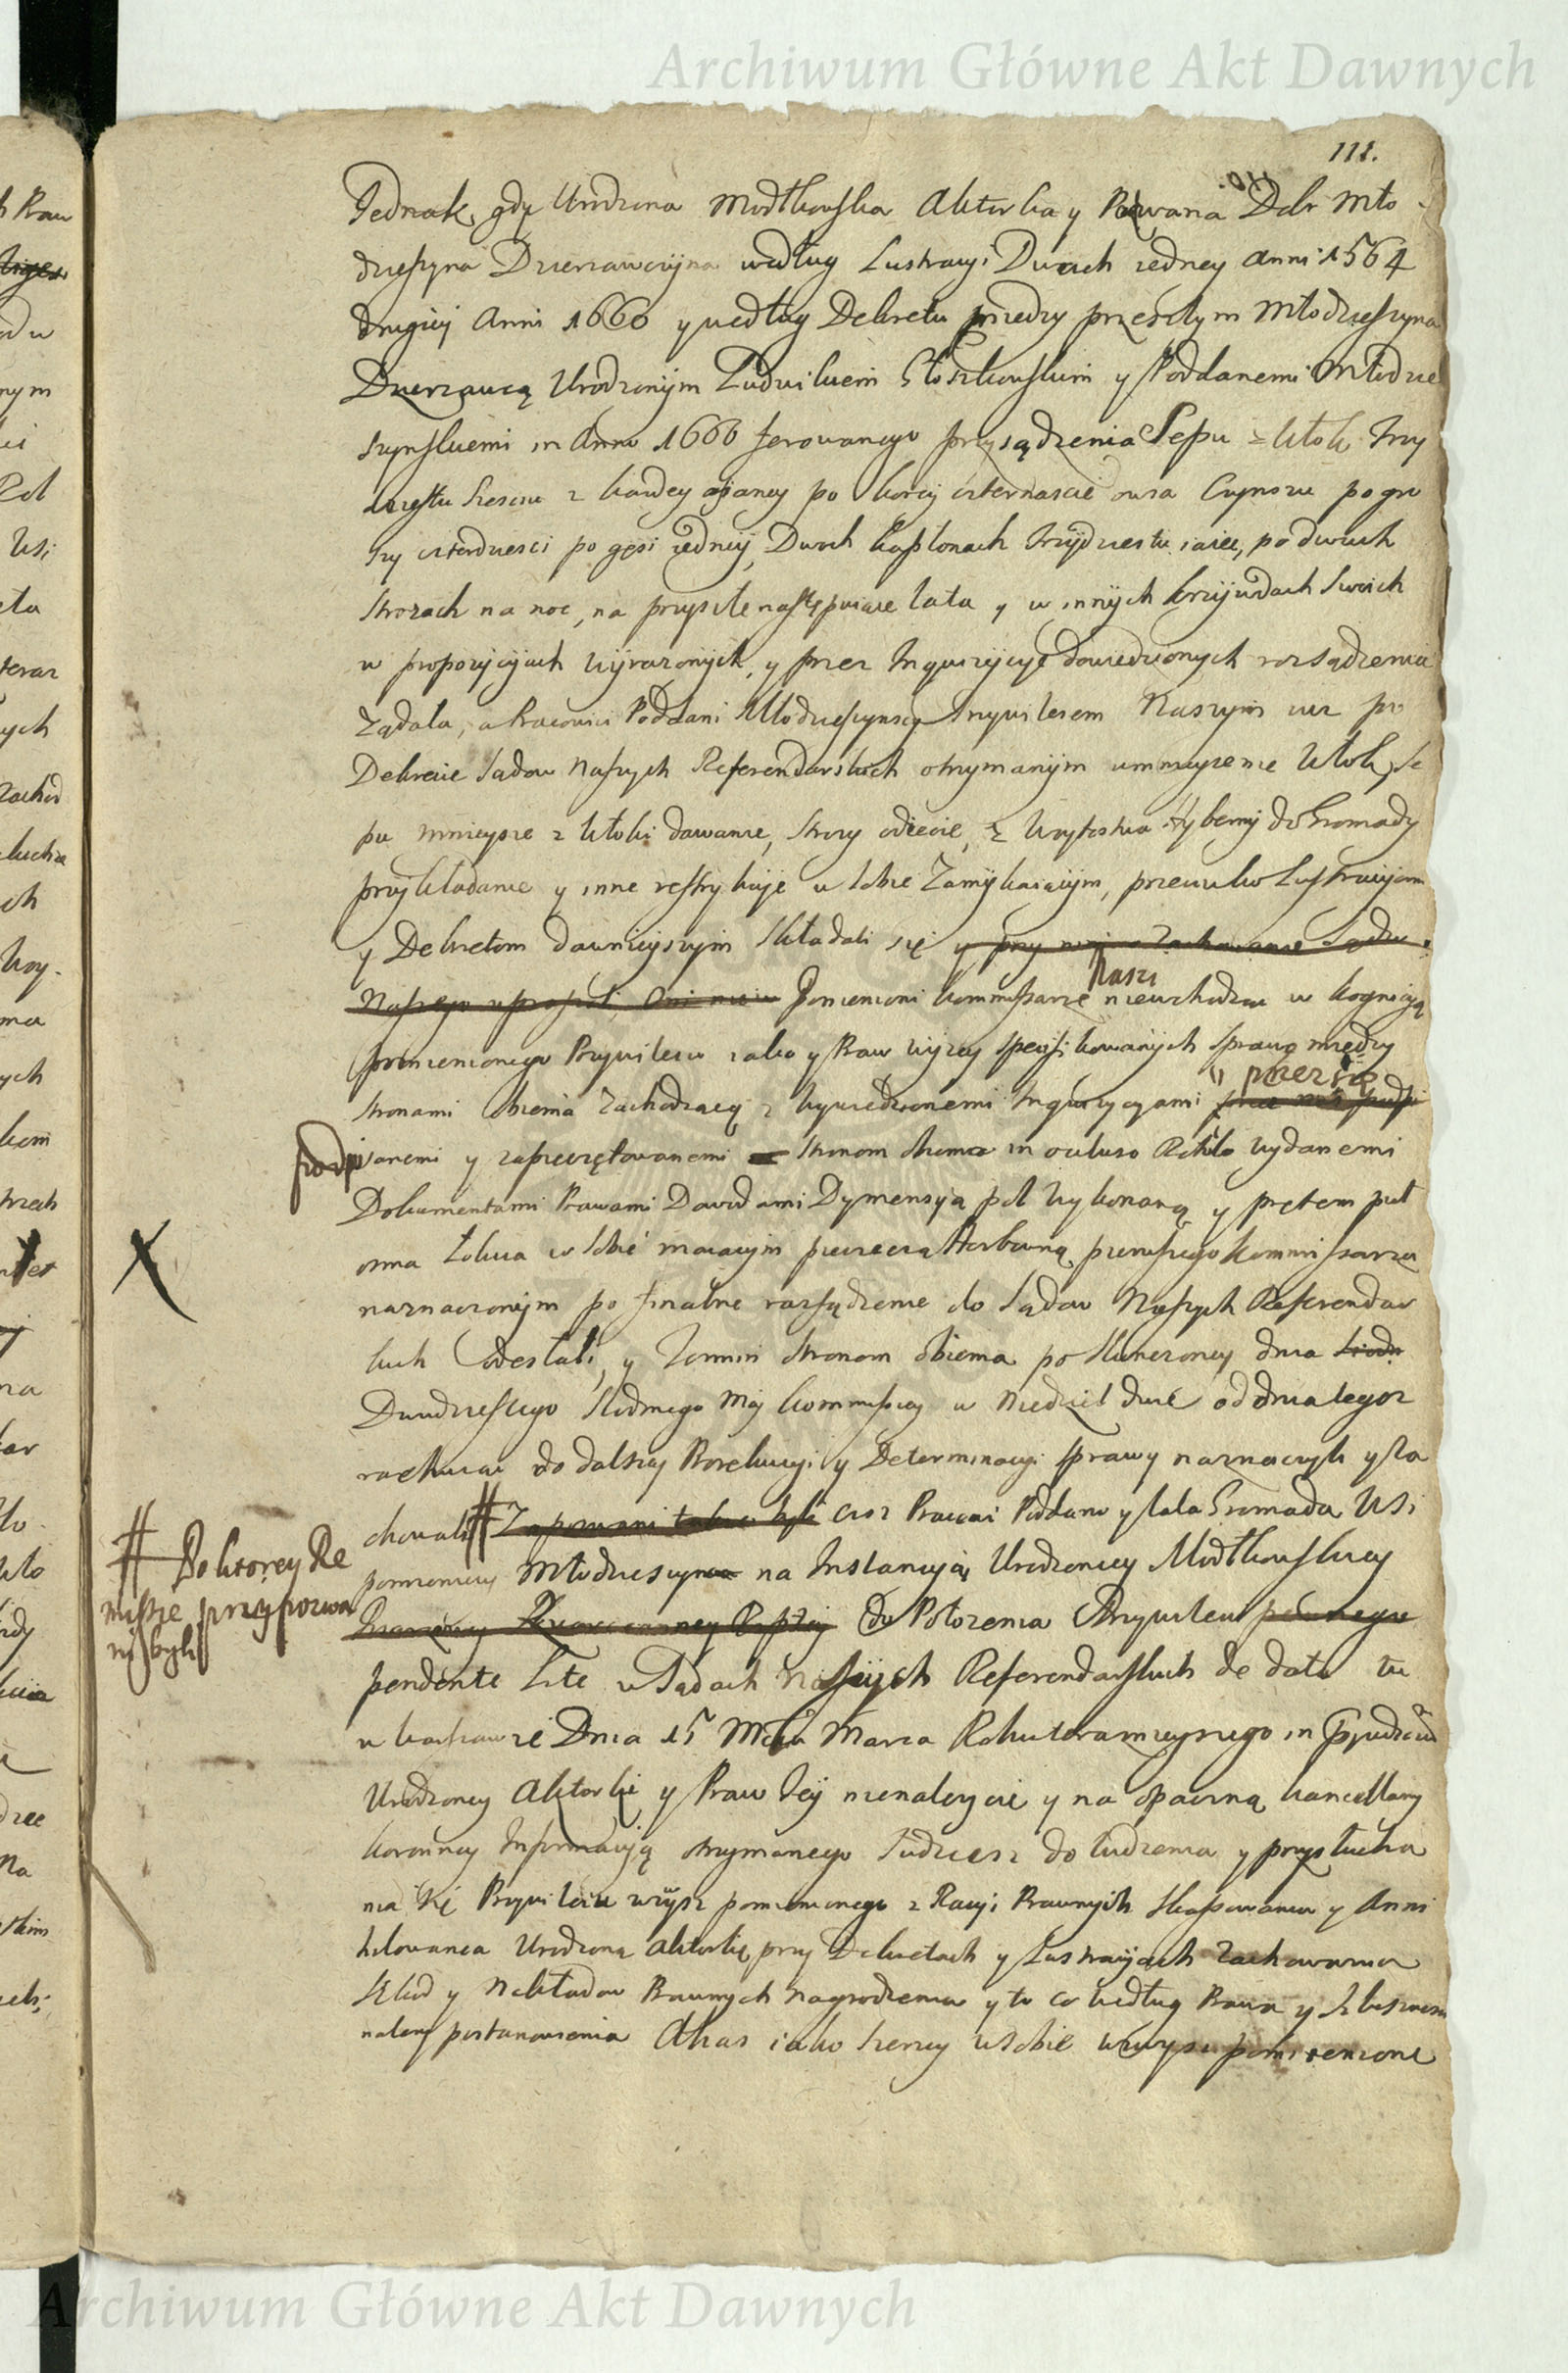 Archiwum Główne Akt Dawnych
111.
Jednak, gdy Urodzona Modtkowska Aktorka y Pozwana Dobr Mło
dzieszyna Dzierzawczyna według Lustracyi Dwuch iedney Anni 1564
drugiey Anni 1660 y według Dekretu między przeszłym Młodzieszyna
Dzierzawcą Urodzonym Ludwikiem y Poddanemi Młodzie
szynskiemi in Anno 1666 ferowanego przysądzenia Sepu z Włok trzy
dziestu szesciu z kazdey po korcy czternascie owsa Czynszu po gro
szy czterdziesci po gęsi iedney, Dwuch kapłonach trzydziestu iaiec, po dwuch
strozach na noc, na przyszłe następuiące lata y w innych krzywdach swoich
w propozycyach wyrazonych, y przez Inquizycye dowiedzionych rozsądzenia
ządała, a Pracowici Poddani Młodzieszynscy Przywileiem Naszym iuz po
Dekrecie Sądow Naszych Referendarskich otrzymanym umnieyszenie Włok, Se
pu mnieysze z Włoki dawanie, strozy odięcie, z Woytostwa Hyberny do Gromady
przykładanie y inne restrykcye w sobie Zamykaiącym, przeciwko Lustracyom
y Dekretom dawnieyszym składali się y przy nim Zachowanie Sądu
Naszego uprosili, Pomienioni Kommissarze Nasi niewchodząc w kognicyą
pomienionego Przywileiu iako y Praw wyzey specifikowanych sprawę między
stronami obiema Zachodzącą z wywiedzionemi Inquizycyami przez się
podpisanemi y zapieczętowanemi stronom obiema in ocluso Rotulo wydanemi
Dokumentami Prawami Dowodami Dymensyą pol wykonaną y prętem puł
osma łokcia w sobie maiącym pieczęcią Herbowną pierwszego Kommissarza
naznaczonym po finalne rozsądzenie do Sądow Naszych Referendar
skich odesłali, y Termin stronom obiema po skonczoney dnia
Dwudziestego siodmego Maj Kommissyi w Niedziel dwie od dnia tegoz
rachuiąc do dalszey Prosekucyi y Determinacyi sprawy naznaczyli y za
chowali # cioz Pracowici Poddani y cała Gromada Wsi
# Po ktorey Re
missie przypozwa
ni byli
pomienioney Młodzieszyna na Instancyią Urodzoney Modtkowskiey
do Położenia Przywileiu
pendente Lite w Sądach Naszych Referendarskich de data tu
w Warszawie Dnia 15 Mca Marca Roku teraznieyszego in Pjudicium
Urodzoney Aktorki y Praw Jey nienalezycie y na opaczną kancellaryi
koronney Informacyą otrzymanego tudziesz do widzenia y przysłucha
nia się Przywileiu wyzsz pomienionego z Racyi Prawnych skassowania y Anni
hilowania Urodzoną Aktorkę przy Dekretach y Lustracyach Zachowania
Szkod y Nakładow Prawnych nagrodzenia y to co według Prawa y
postanowienia Akas iako szerzy w sobie wzwysz pomienione
Archiwum Główne Akt Dawnych